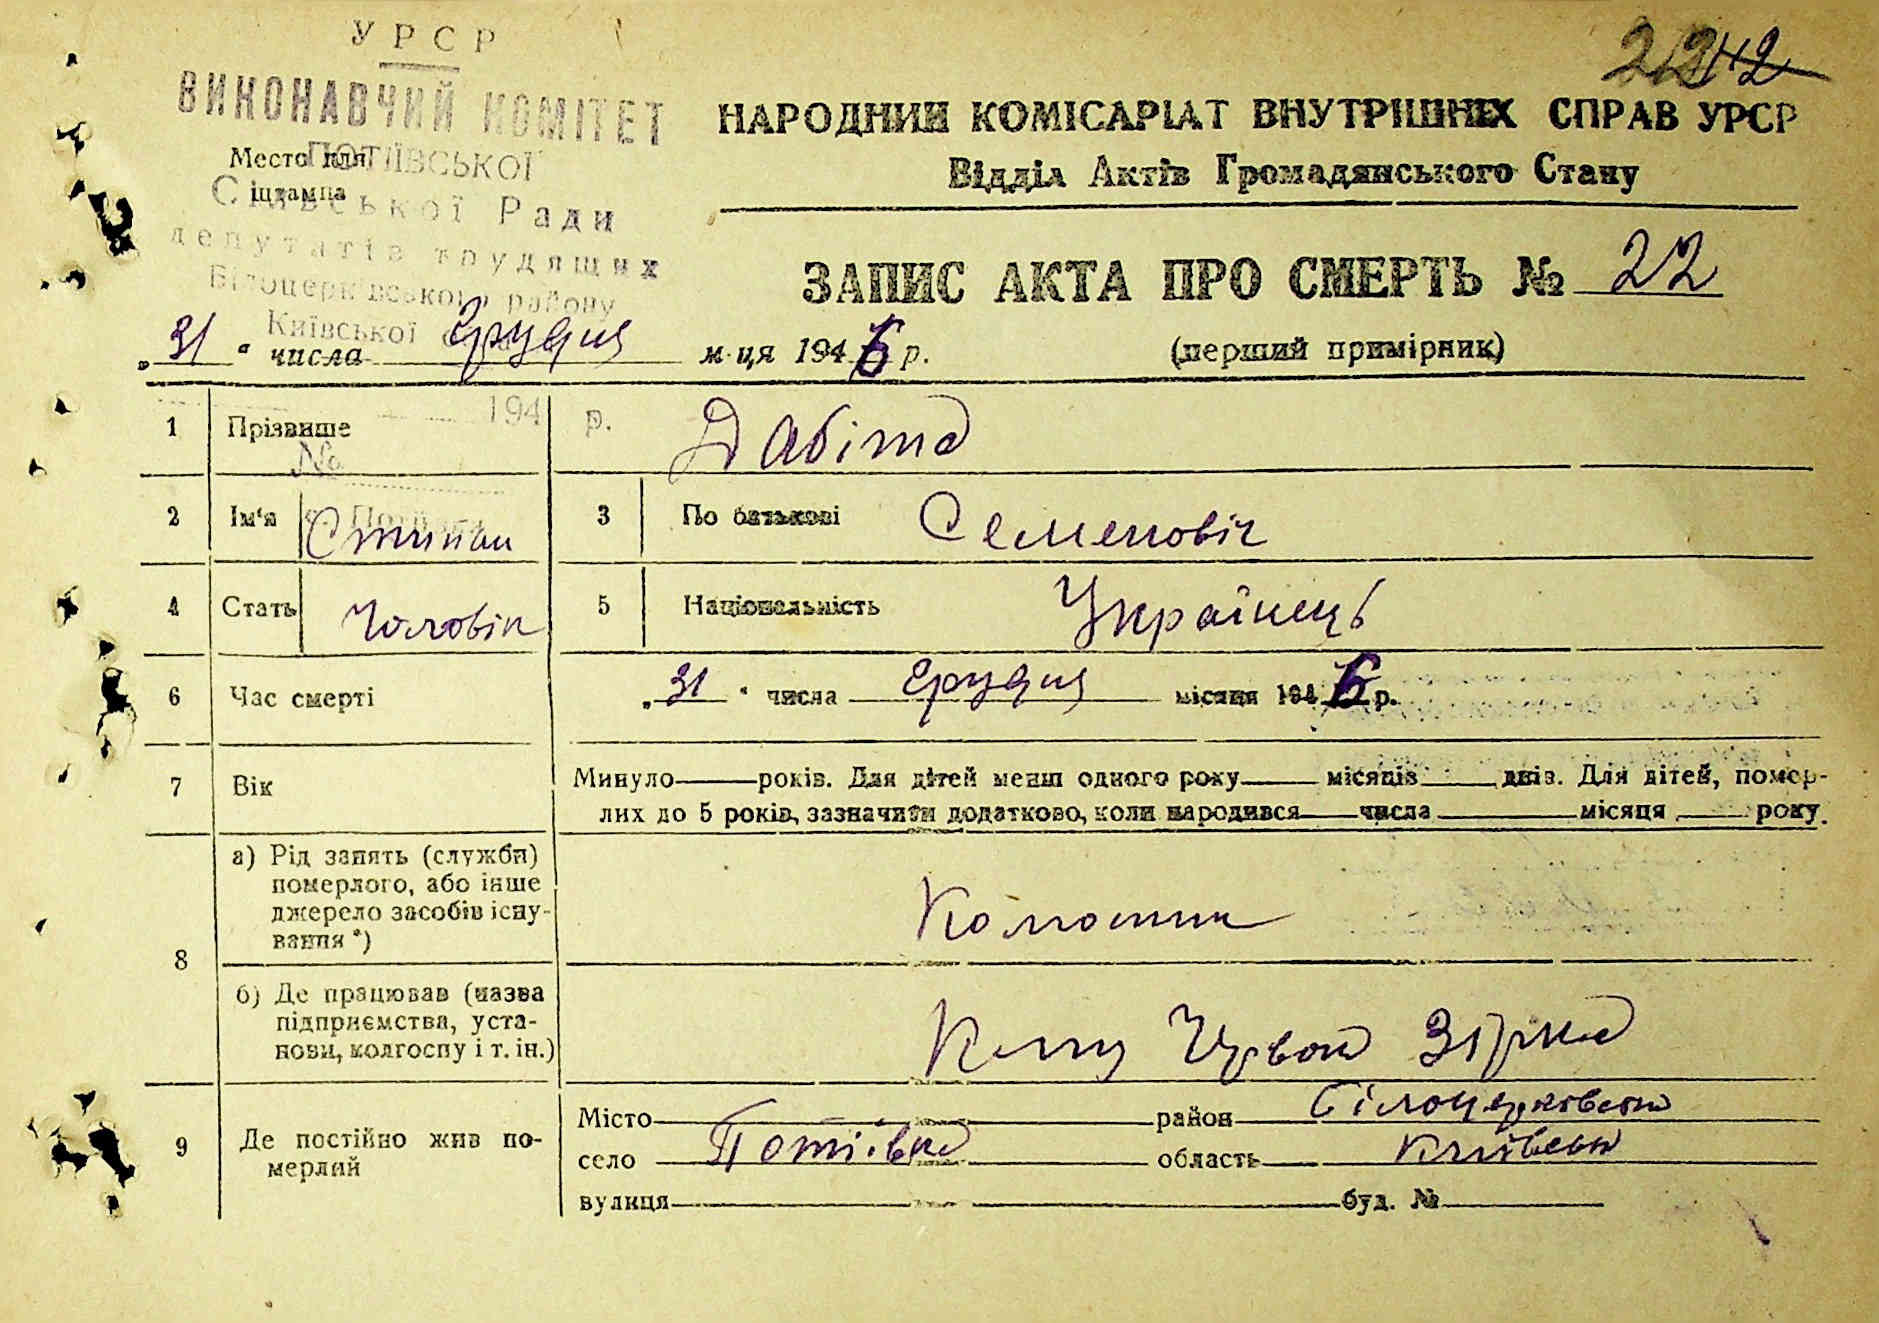 УРСР
ВИКОНАВЧИЙ КОМІТЕТ
ПОТІЇВСЬКОЇ
Сільської Ради
депутатів трудящих
Білоцерківського району
Київської
194 р.
№
Место для
штампа
22
НАРОДНИЙ КОМІСАРІАТ ВНУТРІШНІХ СПРАВ УРСР
Відділ Актів Громадянського Стану
ЗАПИС АКТА ПРО СМЕРТЬ № 22
„31“ числа Грудня м-ця 1946 р.
(перший примірник)
1 Прізвище Дабіжа
2 Ім'я Степан 3 По батькові Семенович
4 Стать Чоловік 5 Національність Українець
6 Час смерті „31“ числа грудня місяця 1946 р.
7 Вік Минуло року років. Для дітей менш одного року місяців днів. Для дітей, помер-
лих до 5 років, зазначити додатково, коли народився числа місяця року.
8 а) Рід занять (служби)
померлого, або інше
джерело засобів існу-
вання *)
Колгосник
б) Де працював (назва
підприємства, уста-
нови, колгоспу і т. ін.)
Зірка
9 Де постійно жив по-
мерлий
Місто район Білоцерківськ
село Потіївка область Київськ
вулиця буд. №